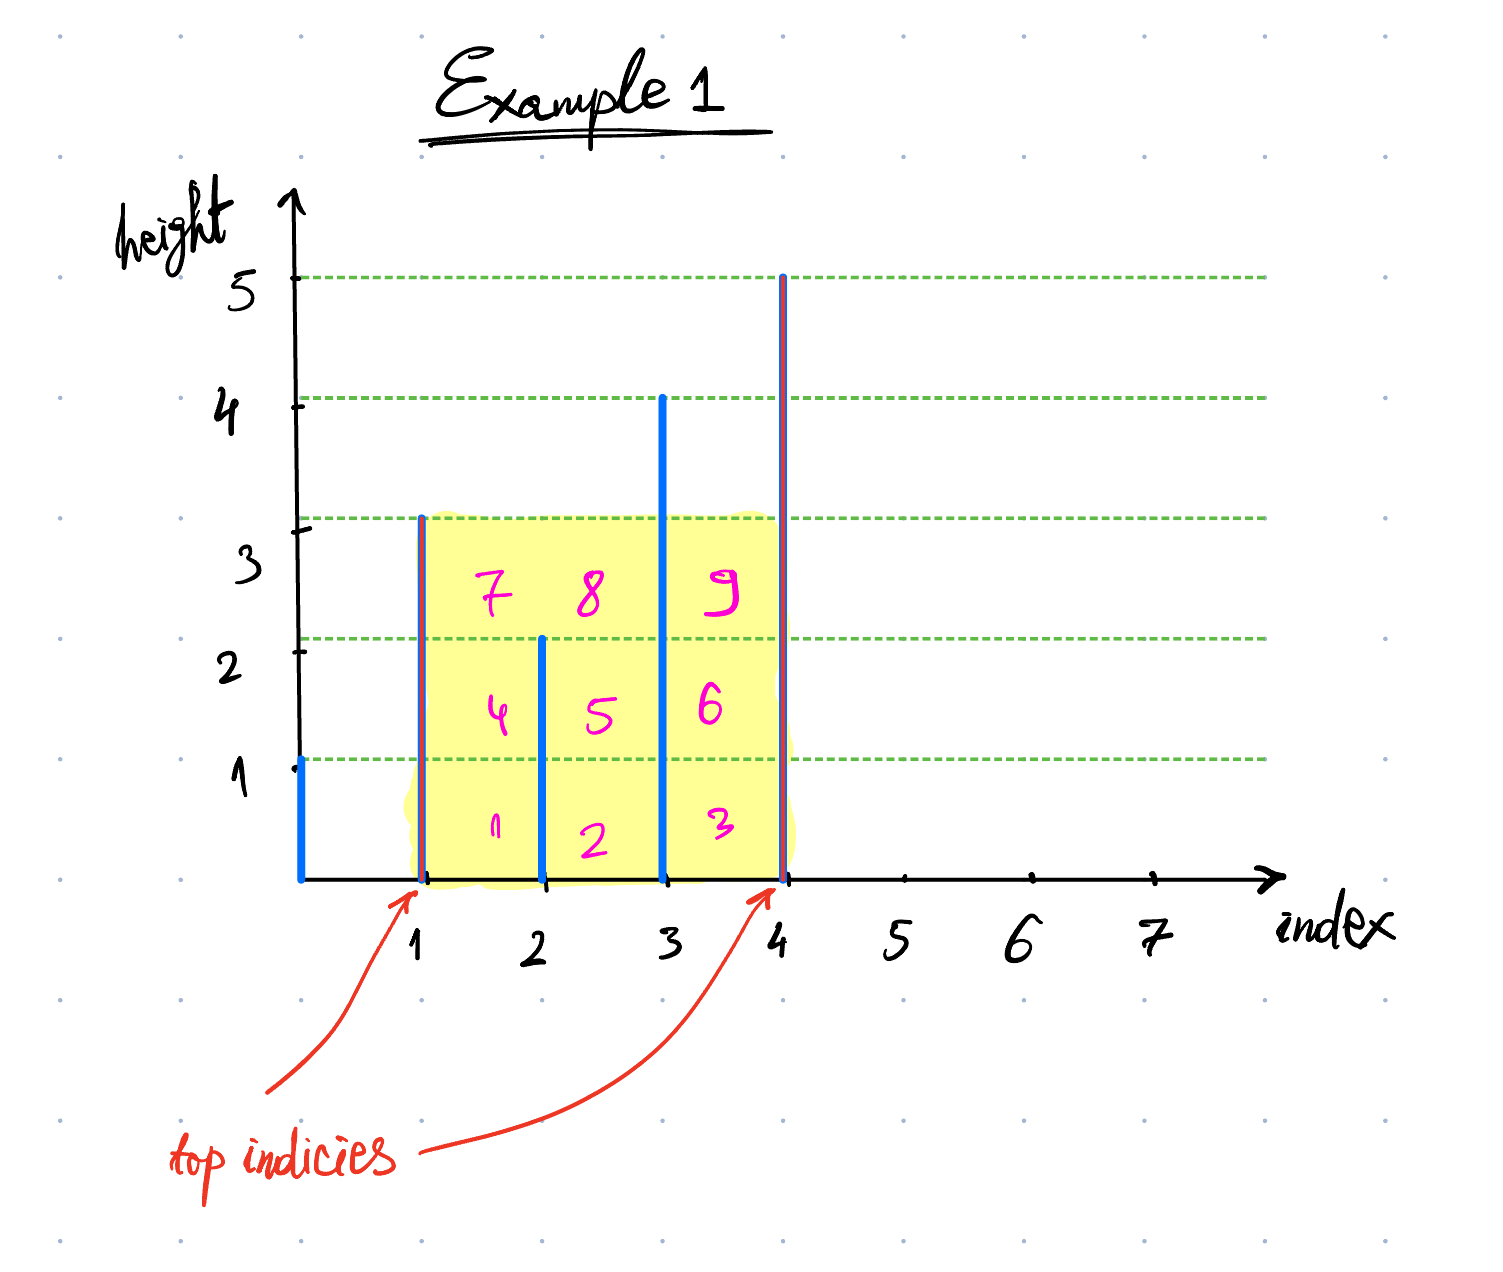 Example 1
height
5
4
3
7 8 9
2
4 5 6
1
1 2 3
1 2 3 4 5 6 7 index
top indicies